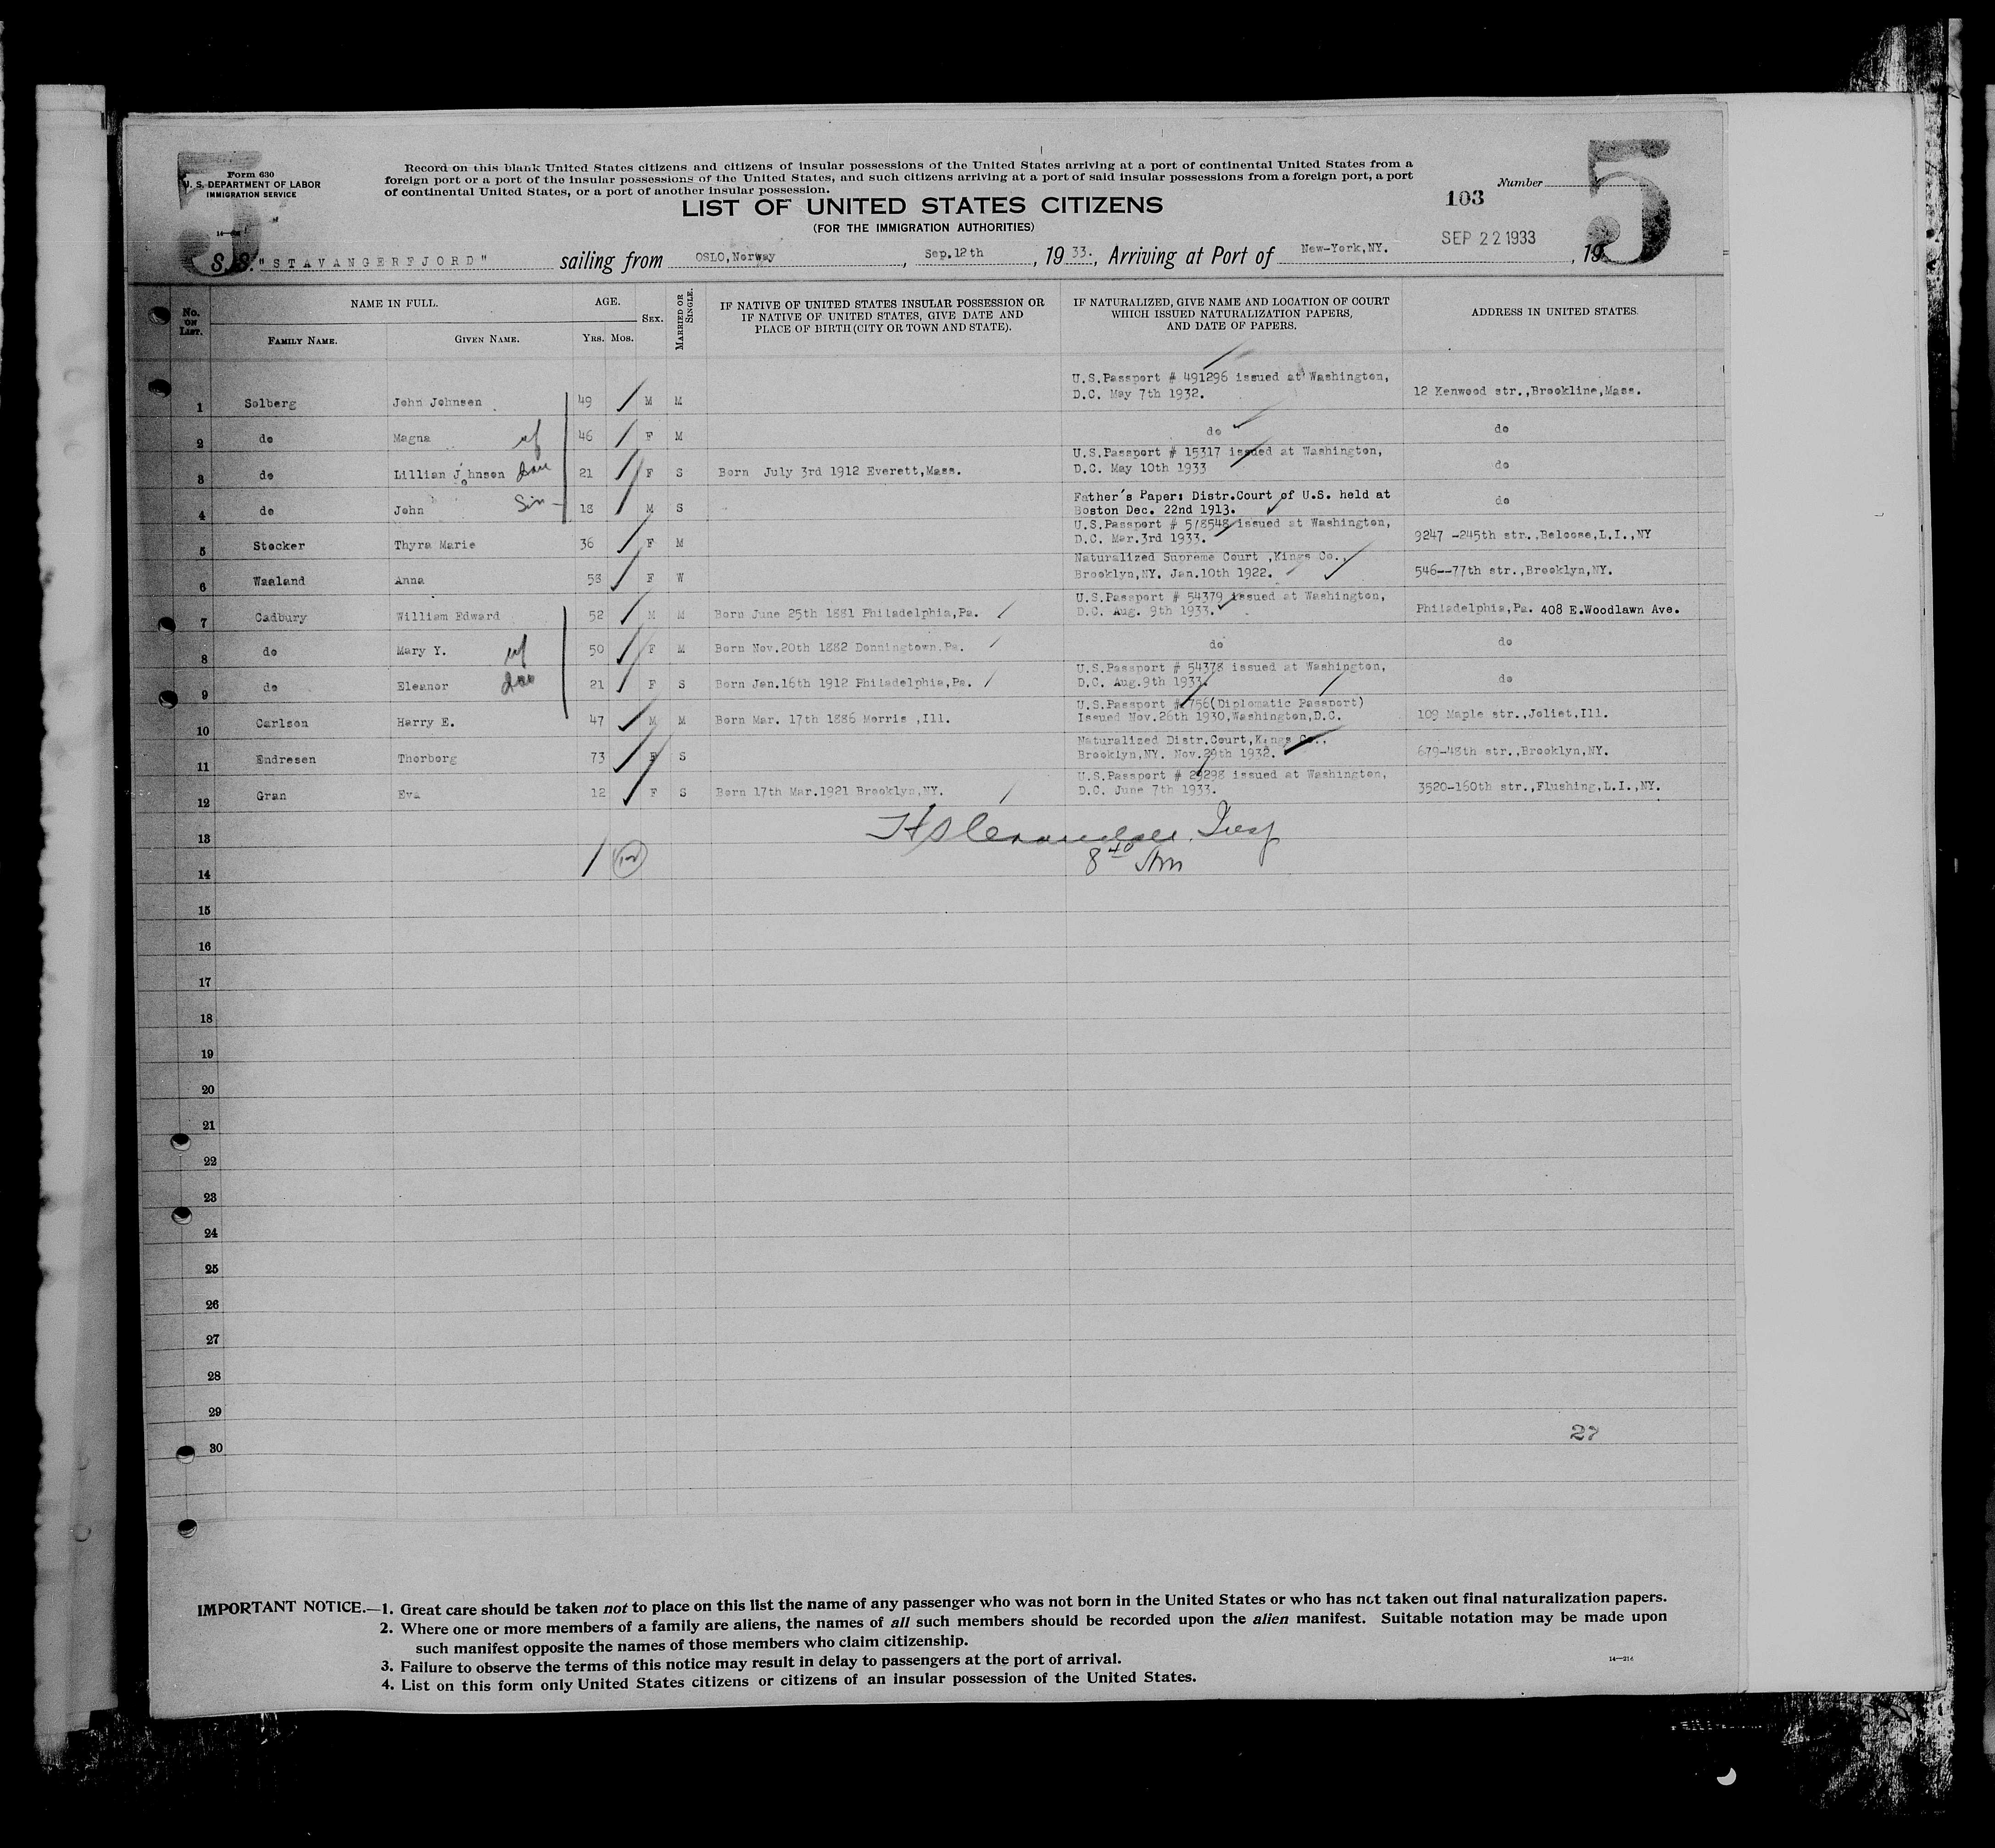 5
Form 630
U. S. DEPARTMENT OF LABOR
IMMIGRATION SERVICE
Record on this blank United States citizens and citizens of insular possessions of the United States arriving at a port of continental United States from a
foreign port or a port of the insular possessions of the United States, and such citizens arriving at a port of said insular possessions from a foreign port, a port
of continental United States, or a port of another insular possession.
LIST OF UNITED STATES CITIZENS
(FOR THE IMMIGRATION AUTHORITIES)
103
Number
5
SEP 22 1933
S.S. "STAVANGERFJORD" sailing from OSLO,Norway, Sep.12th, 1933., Arriving at Port of New-York,NY., 19
No. ON LIST.
NAME IN FULL.
FAMILY NAME. GIVEN NAME.
AGE.
YRS. MOS.
SEX.
MARRIED OR SINGLE.
IF NATIVE OF UNITED STATES INSULAR POSSESSION OR
IF NATIVE OF UNITED STATES, GIVE DATE AND
PLACE OF BIRTH (CITY OR TOWN AND STATE).
IF NATURALIZED, GIVE NAME AND LOCATION OF COURT
WHICH ISSUED NATURALIZATION PAPERS,
AND DATE OF PAPERS.
ADDRESS IN UNITED STATES.
U.S.Passport # 491296 issued at Washington,
1 Solberg John Johnsen 49 M M D.C. May 7th 1932. 12 Kenwood str.,Brookline,Mass.
2 do Magna wf 46 F M do do
U.S.Passport # 15317 issued at Washington,
3 do Lillian Johnson dau 21 F S Born July 3rd 1912 Everett,Mass. D.C. May 10th 1933 do
Father's Paper: Distr.Court of U.S. held at
4 do John Son 18 M S Boston Dec. 22nd 1913. do
U.S.Passport # 578548 issued at Washington,
5 Stocker Thyra Marie 36 F M D.C. Mar.3rd 1933. 9247 -245th str.,Belcose,L.I.,NY
Naturalized Supreme Court ,Kings Co.,
6 Waaland Anna 53 F W Brooklyn,NY. Jan.10th 1922. 546--77th str.,Brooklyn,NY.
U.S.Passport # 54379 issued at Washington,
7 Cadbury William Edward 52 M M Born June 25th 1881 Philadelphia,Pa. D.C. Aug. 9th 1933. Philadelphia,Pa. 408 E.Woodlawn Ave.
8 do Mary Y. wf 50 F M Born Nov.20th 1882 Donningtown.Pa. do do
U.S.Passport # 54378 issued at Washington,
9 do Eleanor dau 21 F S Born Jan.16th 1912 Philadelphia,Pa. D.C. Aug.9th 1933. do
U.S.Passport # 756(Diplomatic Passport)
10 Carlson Harry E. 47 M M Born Mar. 17th 1886 Morris ,Ill. Issued Nov.26th 1930,Washington,D.C. 109 Maple str.,Joliet,Ill.
Naturalized Distr.Court,Kings Co.,
11 Endresen Thorborg 73 F S Brooklyn,NY. Nov.29th 1932. 679-48th str.,Brooklyn,NY.
U.S.Passport # 29298 issued at Washington,
12 Gran Eva 12 F S Born 17th Mar.1921 Brooklyn,NY. D.C. June 7th 1933. 3520-160th str.,Flushing,L.I.,NY.
13
8 40 Am
14
15
16
17
18
19
20
21
22
23
24
25
26
27
28
29
27
30
IMPORTANT NOTICE.—1. Great care should be taken not to place on this list the name of any passenger who was not born in the United States or who has not taken out final naturalization papers.
2. Where one or more members of a family are aliens, the names of all such members should be recorded upon the alien manifest. Suitable notation may be made upon
such manifest opposite the names of those members who claim citizenship.
3. Failure to observe the terms of this notice may result in delay to passengers at the port of arrival.
14—214
4. List on this form only United States citizens or citizens of an insular possession of the United States.